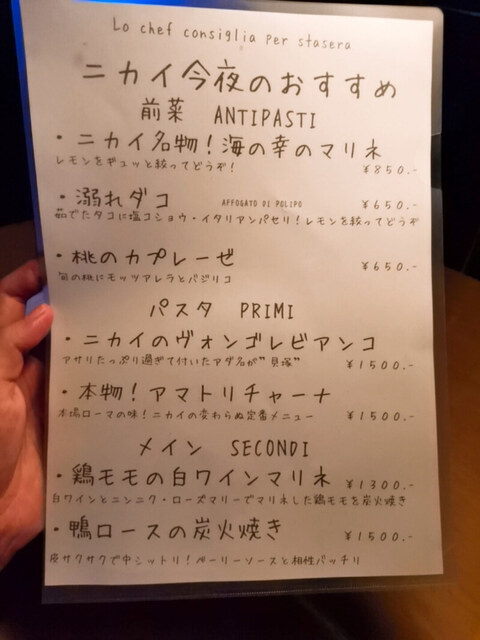 Lo chef consiglia per stasera
ニカイ今夜のおすすめ
前菜 ANTIPASTI
・ニカイ名物!海の幸のマリネ
レモンをギュッと絞ってどうぞ! ¥850.-
・溺れダコ AFFOGATO DI POLIPO ¥650.-
茹でたタコに塩コショウ・イタリアンパセリ!レモンを絞ってどうぞ
・桃のカプレーゼ ¥650.-
旬の桃にモッツアレラとバジリコ
パスタ PRIMI
・ニカイのヴォンゴレビアンコ
アサリたっぷり過ぎて付いたアダ名が"貝塚" ¥1500.-
・本物!アマトリチャーナ
本場ローマの味!ニカイの変わらぬ定番メニュー ¥1500.-
メイン SECONDI
・鶏モモの白ワインマリネ ¥1300.-
白ワインとニンニク・ローズマリーでマリネした鶏モモを炭火焼き
・鴨ロースの炭火焼き ¥1500.-
皮サクサクで中シットリ!ベーリーソースと相性バッチリ